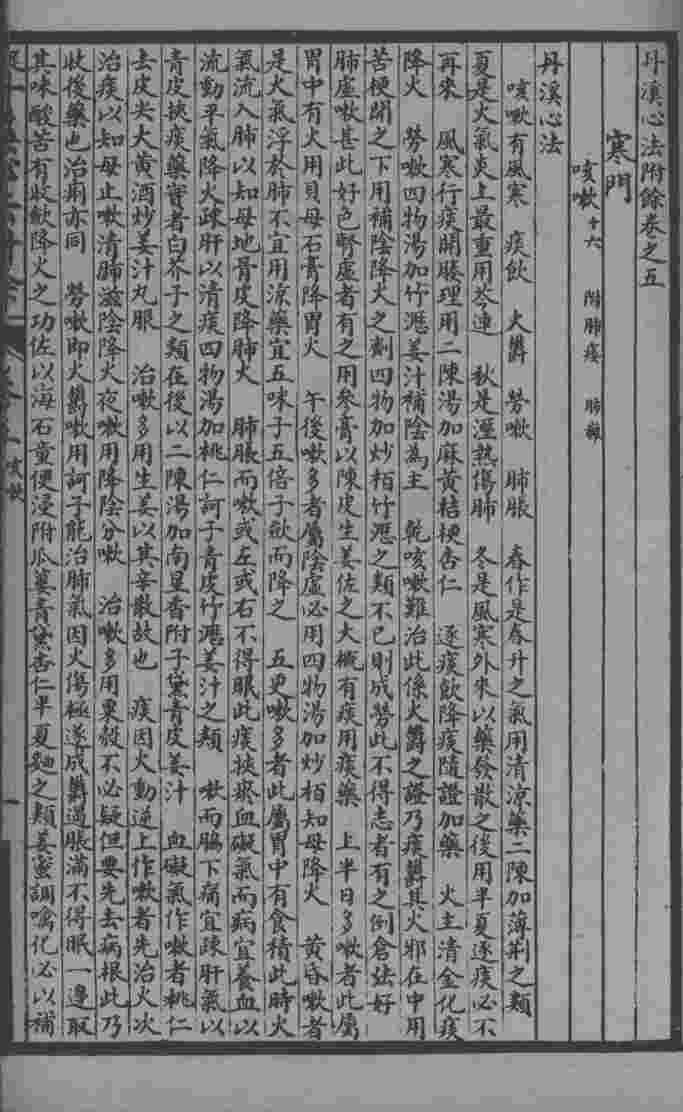 丹溪心法附餘卷之五
寒門
咳嗽十六 附肺痿 肺癰
丹溪心法
咳嗽有風寒 痰飲 火鬱 勞嗽 肺脹 春作是春升之氣用清涼藥二陳加薄荆之類
夏是火氣炎上最重用芩連 秋是溼熱傷肺 冬是風寒外來以藥發散之後用半夏逐痰必不
再來 風寒行痰開腠理用二陳湯加麻黃桔梗杏仁 逐痰飲降痰隨證加藥 火主清金化痰
降火 勞嗽四物湯加竹瀝姜汁補陰為主 乾咳嗽難治此係火鬱之證乃痰鬱其火邪在中用
苦梗開之下用補陰降火之劑四物加炒栢竹瀝之類不已則成勞此不得志者有之倒倉法好
肺虛嗽甚此好色腎虛者有之用參膏以陳皮生姜佐之大概有痰用痰藥 上半日多嗽者此屬
胃中有火用貝母石膏降胃火 午後嗽多者屬陰虛必用四物湯加炒栢知母降火 黃昏嗽者
是火氣浮於肺不宜用涼藥宜五味子五倍子歛而降之 五更嗽多者此屬胃中有食積此時火
氣流入肺以知母地骨皮降肺火 肺脹而嗽或左或右不得眠此痰挾瘀血礙氣而病宜養血以
流動乎氣降火疎肝以清痰四物湯加桃仁訶子青皮竹瀝姜汁之類 嗽而脇下痛宜疎肝氣以
青皮挾痰藥實者白芥子之類在後以二陳湯加南星香附子黛青皮姜汁 血礙氣作嗽者桃仁
去皮尖大黃酒炒姜汁丸服 治嗽多用生姜以其辛散故也 痰因火動逆上作嗽者先治火次
治痰以知母止嗽清肺滋陰降火夜嗽用降陰分嗽 治嗽多用粟殼不必疑但要先去病根此乃
收後藥也治痢亦同 勞嗽即火鬱嗽用訶子能治肺氣因火傷極遂成鬱遏脹滿不得眠一邊取
其味酸苦有收歛降火之功佐以海石童便浸附瓜蔞青黛杏仁半夏麯之類姜蜜調噙化必以補
咳嗽
一